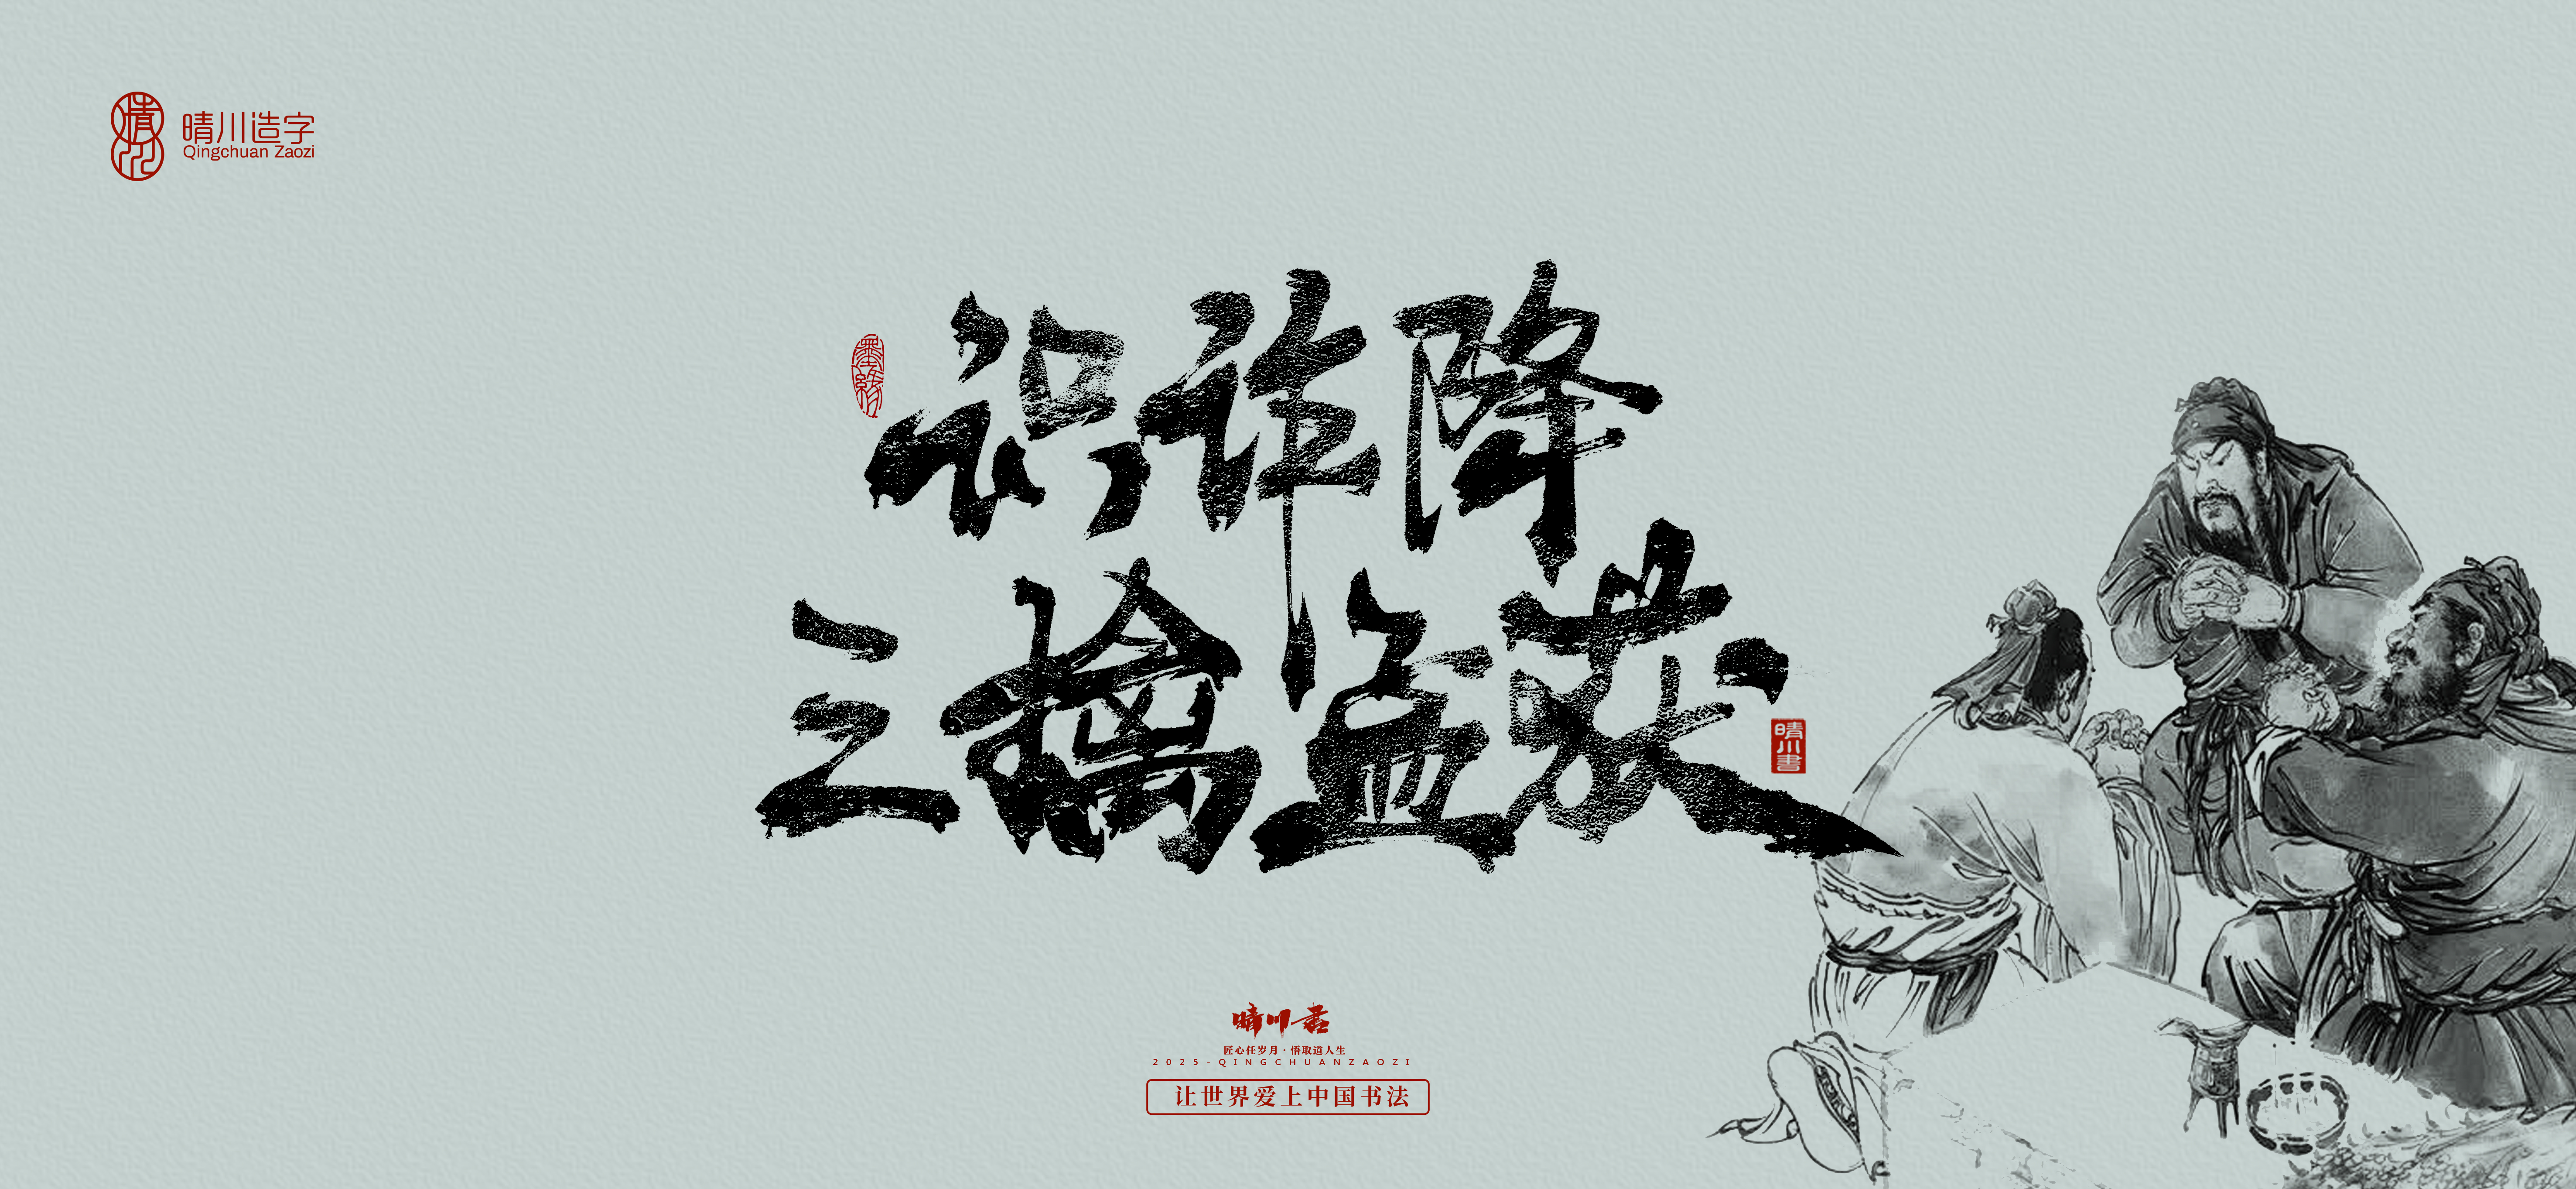 晴川造字
Qingchuan Zaozi
识诈降
三擒孟获
晴川書
晴川書
匠心任岁月·悟取道人生
2025-QINGCHUANZAOZI
让世界爱上中国书法